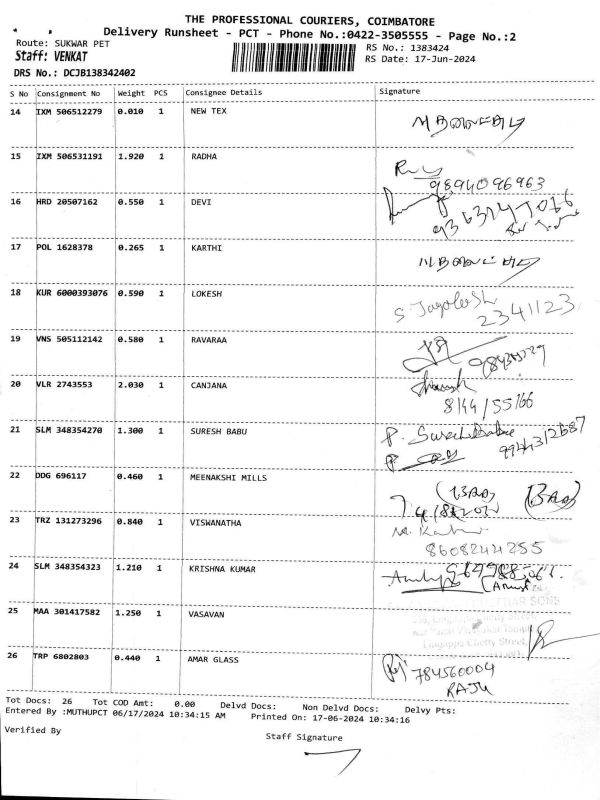 THE PROFESSIONAL COURIERS, COIMBATORE
Delivery Runsheet - PCT - Phone No.:0422-3505555 - Page No.:2
Route: SUKWAR PET
RS No.: 1383424
Staff: VENKAT
RS Date: 17-Jun-2024
DRS No.: DCJB138342402
S No Consignment No Weight PCS Consignee Details Signature
14 IXM 506512279 0.010 1 NEW TEX
15 IXM 506531191 1.920 1 RADHA
9894096963
16 HRD 20507162 0.550 1 DEVI
17 POL 1628378 0.265 1 KARTHI
18 KUR 6000393076 0.590 1 LOKESH
S. Jagadeesh
2341123
19 VNS 505112142 0.580 1 RAVARAA
20 VLR 2743553 2.030 1 CANJANA
8144/55166
21 SLM 348354270 1.300 1 SURESH BABU
P. Suresh Babu
22 DDG 696117 0.460 1 MEENAKSHI MILLS
23 TRZ 131273296 0.840 1 VISWANATHA
8608244255
24 SLM 348354323 1.210 1 KRISHNA KUMAR
25 MAA 301417582 1.250 1 VASAVAN
Lingappa Chetty Street,
26 TRP 6802803 0.440 1 AMAR GLASS
784560004
RAJU
Tot Docs: 26 Tot COD Amt: 0.00 Delvd Docs: Non Delvd Docs: Delvy Pts:
Entered By :MUTHUPCT 06/17/2024 10:34:15 AM Printed On: 17-06-2024 10:34:16
Verified By
Staff Signature